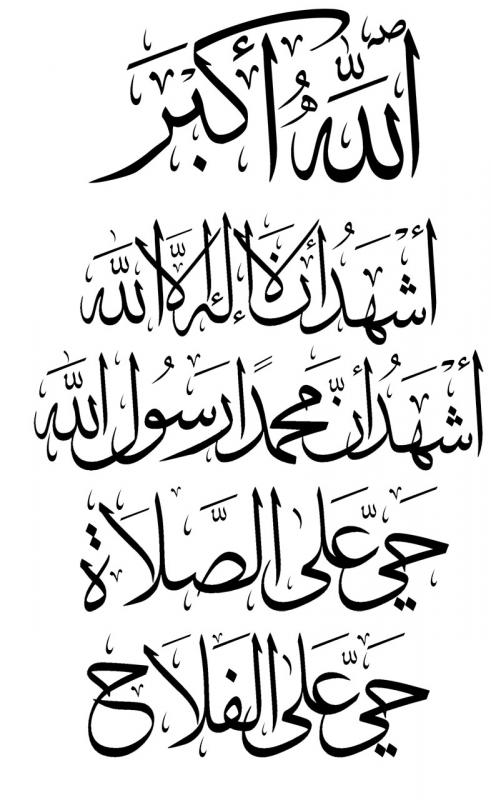 اللّٰهُ أَكْبَرَ
أَشْهَدُ أَنْ لَا إِلٰهَ إِلَّا اللّٰه
أَشْهَدُ أَنَّ مُحَمَّدًا رَسُول اللّٰه
حَيَّ عَلَى الصَّلَاة
حَيَّ عَلَى الفَلَاح